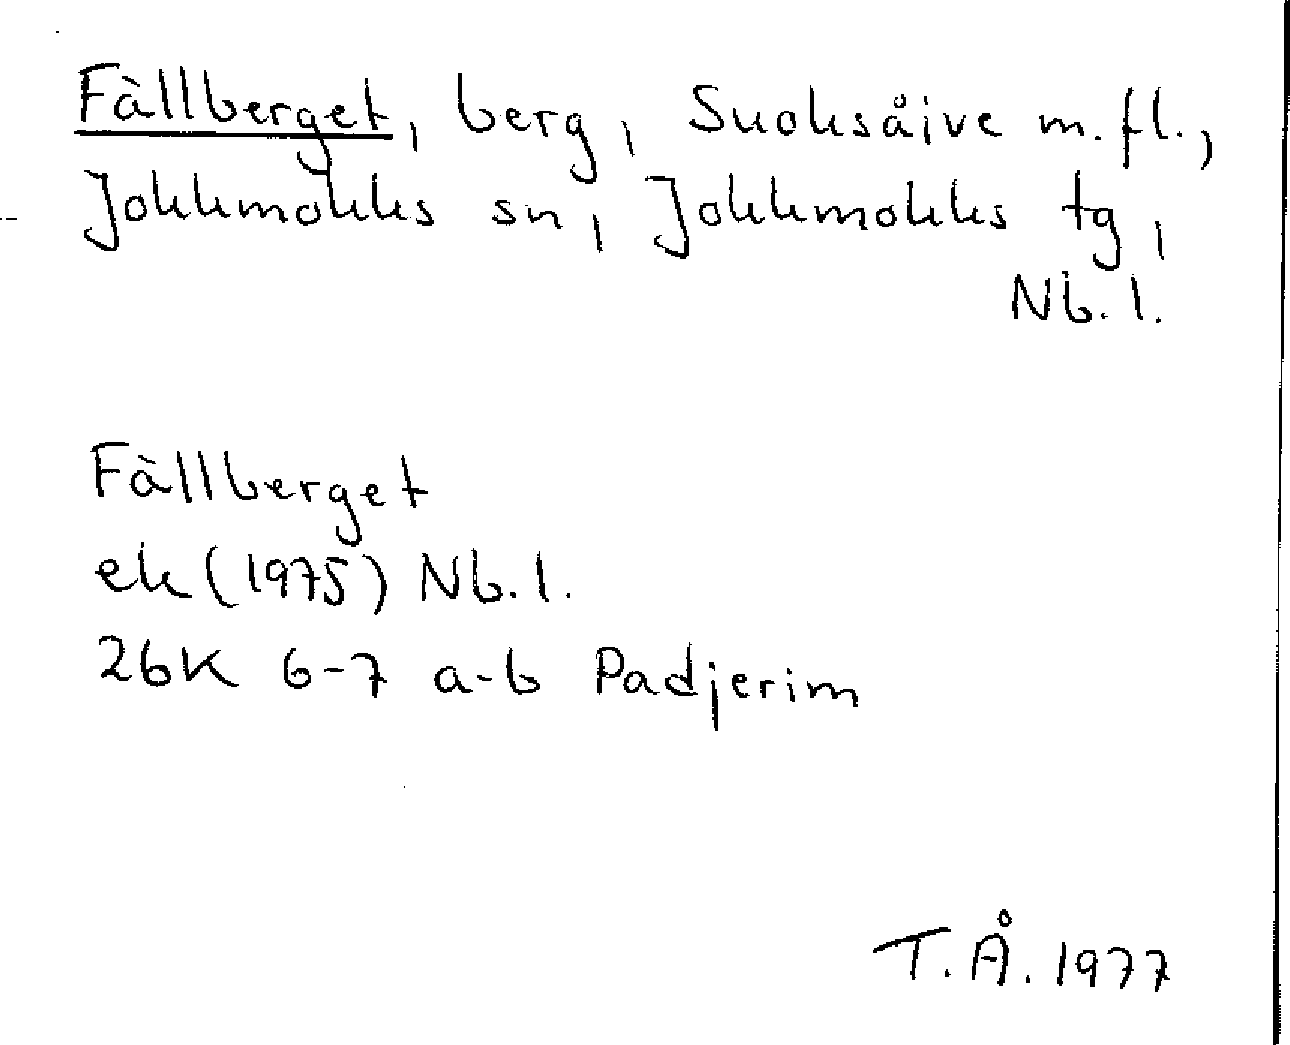 Fällberget, berg, Suoksåive m.fl.,
Jokkmokks sn, Jokkmokks tg,
Nb. l.
Fällberget
ek (1975) Nb. l.
26K 6-7 a-b Padjerim
T. Å. 1977